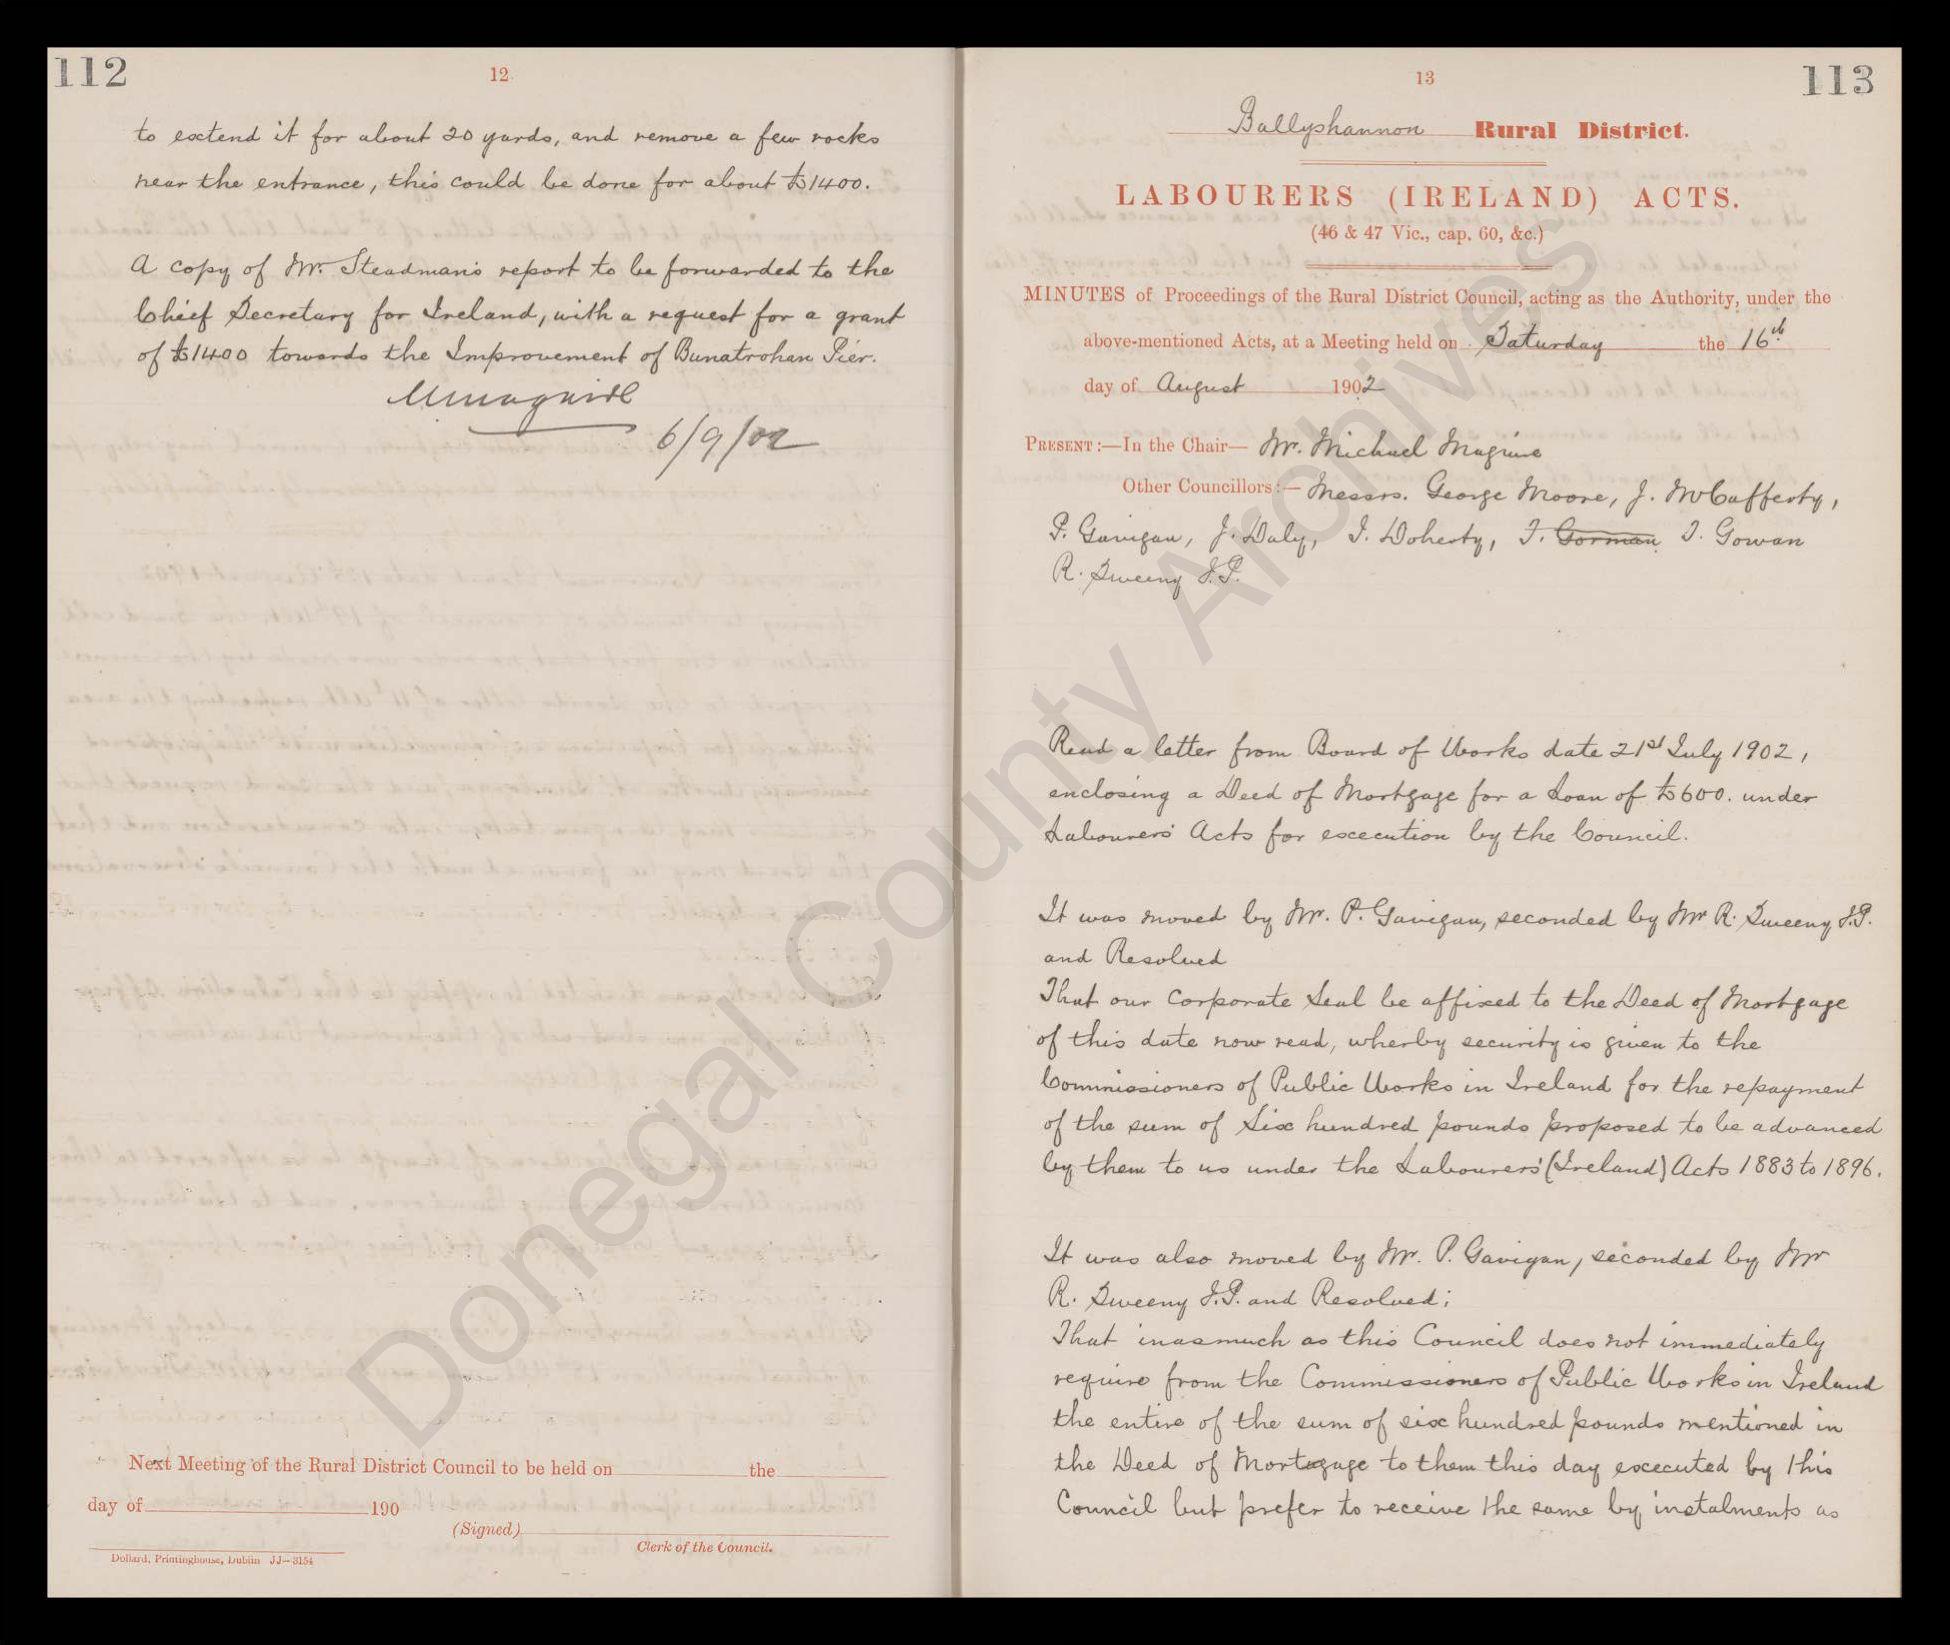 112
12
to extend it for about 20 yards, and remove a few rocks
near the entrance, this could be done for about £1400.
A copy of Mr. Steadman's report to be forwarded to the
Chief Secretary for Ireland, with a request for a grant
of £1400 towards the Improvement of Bunatrohan Pier.
6/9/02
Next Meeting of the Rural District Council to be held on the
day of 190
(Signed)
Clerk of the Council.
Dollard, Printinghouse, Dublin JJ—3154
113
13
Ballyshannon Rural District.
LABOURERS (IRELAND) ACTS.
(46 & 47 Vic., cap. 60, &c.)
MINUTES of Proceedings of the Rural District Council, acting as the Authority, under the
above-mentioned Acts, at a Meeting held on Saturday the 16th
day of August 1902
PRESENT:—In the Chair— Mr. Michael Maguire
Other Councillors:— Messrs. George Moore, J. McCafferty,
P. Gavigan, J. Daly, I. Doherty, T. Gorman T. Gowan
R. Sweeny J.P.
Read a letter from Board of Works date 21st July 1902,
enclosing a Deed of Mortgage for a Loan of £600. under
Labourers' Acts for excecution by the Council.
It was moved by Mr. P. Gavigan, seconded by Mr R. Sweeny J.P.
and Resolved
That our Corporate Seal be affixed to the Deed of Mortgage
of this date now read, wherby security is given to the
Commissioners of Public Works in Ireland for the repayment
of the sum of Six hundred pounds proposed to be advanced
by them to us under the Labourers' (Ireland) Acts 1883 to 1896.
It was also moved by Mr. P. Gavigan, seconded by Mr
R. Sweeny J.P. and Resolved;
That inasmuch as this Council does not immediately
require from the Commissioners of Public Works in Ireland
the entire of the sum of six hundred pounds mentioned in
the Deed of Mortgage to them this day excecuted by this
Council but prefer to receive the same by instalments as
Donegal County Archives